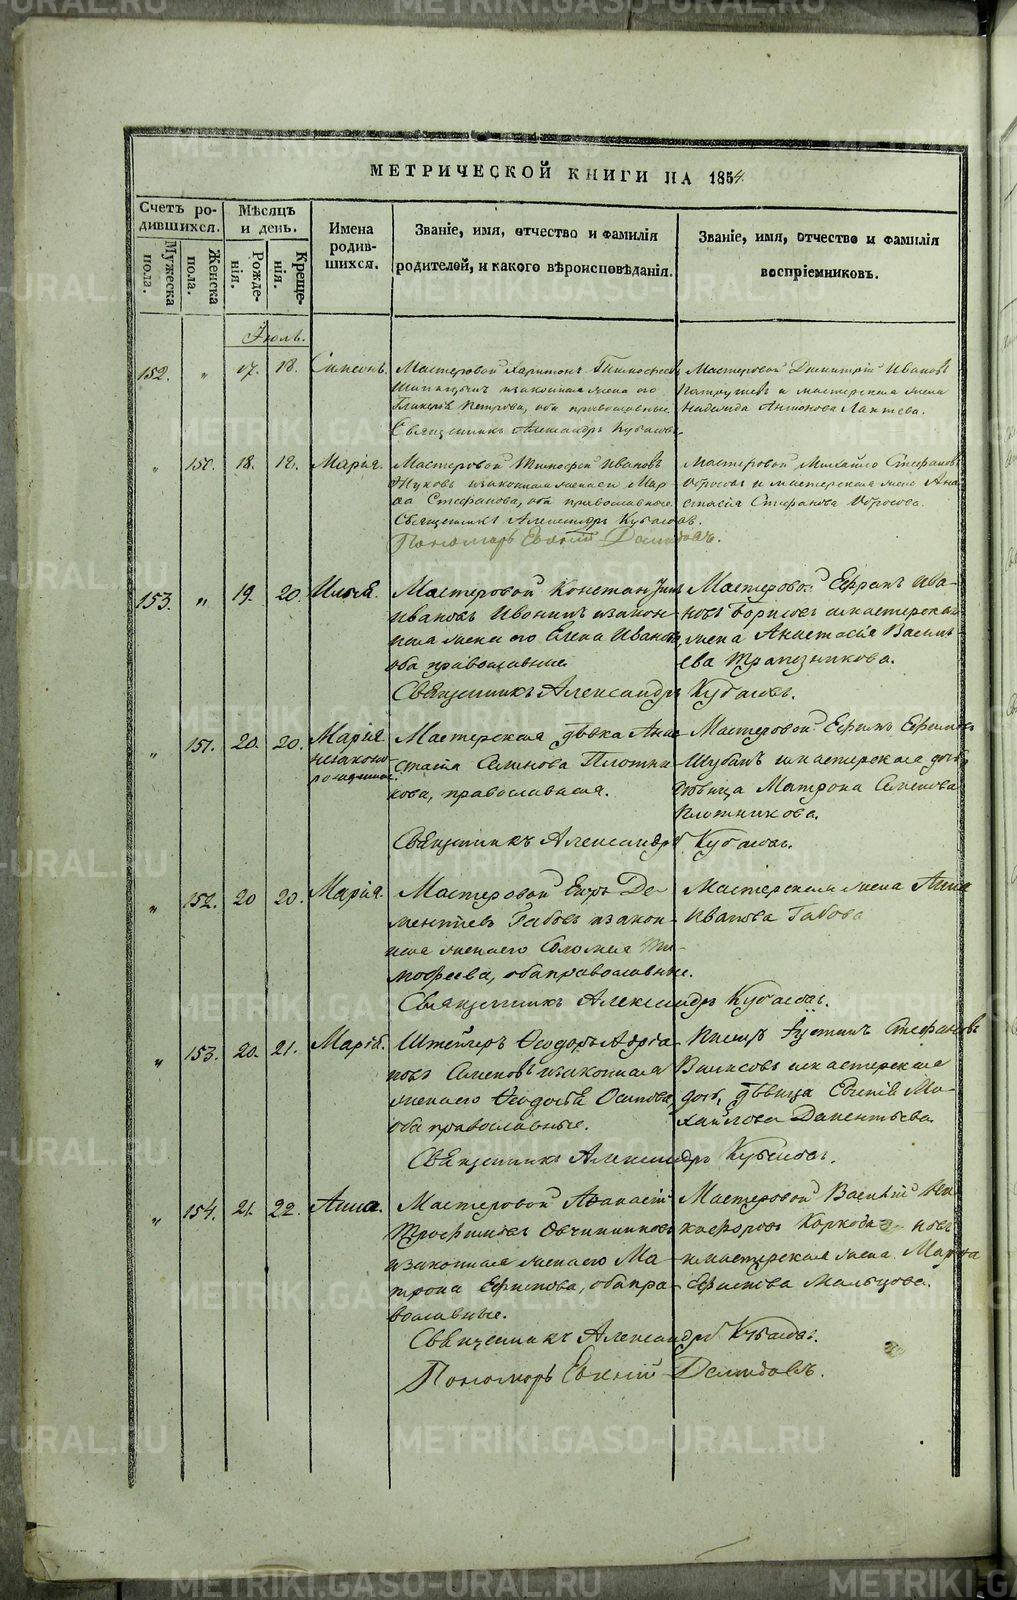 МЕТРИЧЕСКОЙ КНИГИ НА 1854.
Счетъ ро-
дившихся.
Мужеска
пола.
Женска
пола.
Мѣсяцъ
и день.
Рожде-
нія.
Креще-
нія.
Имена
родив-
шихся.
Званіе, имя, отчество и фамилія
родителей, и какого вѣроисповѣданія.
Званіе, имя, отчество и фамилія
воспріемниковъ.
Іюль.
152. " 17. 18. Симеонъ.
Мастеровой Харитонъ Тимофеевъ
изаконная жена его
Гликерія Петрова, оба православные.
Священникъ Александръ Кубасовъ.
Мастеровой Димитрій Ивановъ
и мастерская жена
Надежда Антонова Лаптева.
" 150. 18. 18. Марія.
Мастеровой Тимофей Ивановъ
Жуковъ изаконная женаего Мар
Стефанова, оба православные.
Священникъ Александръ Кубасовъ.
Пономарь Евѳимій Демидовъ.
Мастеровой Михайло Стефановъ
и мастерская жена Ана
стасія Стефанова
153. " 19. 20. Илья.
Мастеровой Константинъ
Ивановъ Ивонинъ изакон-
ная жена его Елена Иванова
оба православные
Священникъ Александръ Кубасовъ.
Мастеровой Ефремъ Ива-
новъ Борисовъ имастерская
жена Анастасія Василь-
ева Трапезникова.
" 151. 20. 20. Марія
незаконо-
рожденная.
Мастерская дѣвка Ана-
стасія Семенова Плотни-
кова, православная.
Священникъ Александръ Кубасовъ.
Мастеровой Ефимъ Ефимовъ
Шубинъ имастерская дочь
дѣвица Матрона Семенова
Плотникова.
" 152. 20 20. Марія.
Мастеровой Егоръ Де-
ментіевъ Габовъ изакон-
ная женаего Соломея Ти-
мофеева, обаправославные.
Священникъ Александръ Кубасовъ.
Мастерская жена Анна
Иванова Габова
" 153. 20. 21. Марія.
Штейгеръ Ѳеодоръ Адріа-
новъ Семеновъ изаконная
женаего Ѳеодосія Осипова,
оба православные.
Священникъ Александръ Кубасовъ.
Писецъ Іустинъ Стефановъ
Власовъ имастерская
дочь, дѣвица Евгенія Ми-
хайлова Дементьева.
" 154. 21. 22. Анна.
Мастеровой Аѳанасій
Трофимовъ Овчинниковъ
изаконная женаего Ма-
трона Ефимова, обапра-
вославные.
Священникъ Александръ Кубасовъ.
Пономарь Евѳимій Демидовъ.
Мастеровой Василій Ни-
кифоровъ Коркодиновъ
имастерская жена Марфа
Ефимова Мальцова.
METRIKI.GASO-URAL.RU